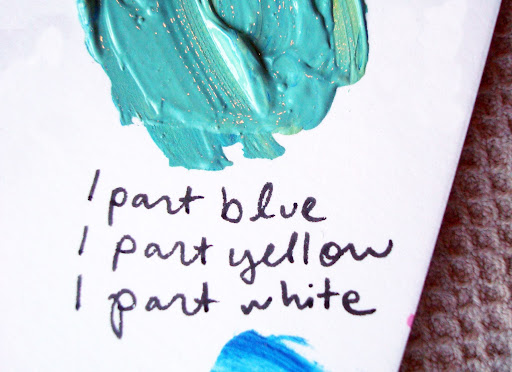 1 part blue
1 part yellow
1 part white